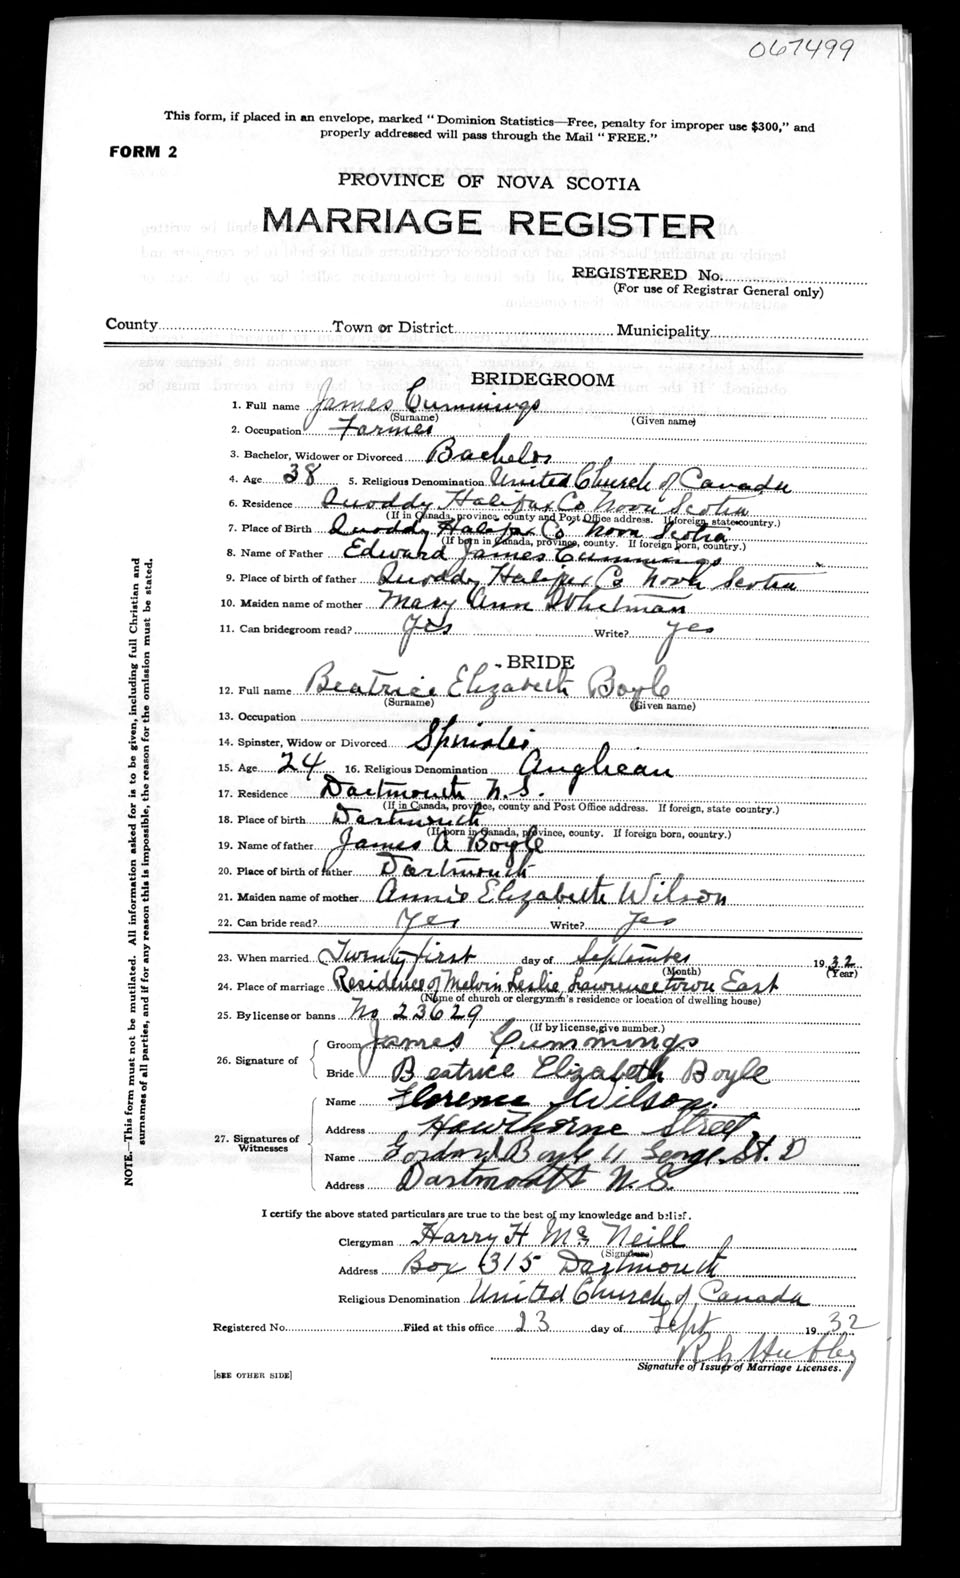 067499
This form, if placed in an envelope, marked "Dominion Statistics—Free, penalty for improper use $300," and
properly addressed will pass through the Mail "FREE."
FORM 2
PROVINCE OF NOVA SCOTIA
MARRIAGE REGISTER
REGISTERED No.
(For use of Registrar General only)
County Town or District Municipality
BRIDEGROOM
1. Full name James Cummings
(Surname) (Given name)
2. Occupation Farmer
3. Bachelor, Widower or Divorced Bachelor
4. Age 38 5. Religious Denomination United Church of Canada
6. Residence Quoddy Halifax Co Nova Scotia
(If in Canada, province, county and Post Office address. If foreign, state country.)
7. Place of Birth Quoddy Halifax Co Nova Scotia
(If born in Canada, province, county. If foreign born, country.)
8. Name of Father Edward James Cummings
9. Place of birth of father Quoddy Halifax Co Nova Scotia
10. Maiden name of mother Mary Ann Whitman
11. Can bridegroom read? Yes Write? yes
BRIDE
12. Full name Beatrice Elizabeth Boyle
(Surname) (Given name)
13. Occupation
14. Spinster, Widow or Divorced Spinster
15. Age 24 16. Religious Denomination Anglican
17. Residence Dartmouth N.S.
(If in Canada, province, county and Post Office address. If foreign, state country.)
18. Place of birth Dartmouth
(If born in Canada, province, county. If foreign born, country.)
19. Name of father James A Boyle
20. Place of birth of father Dartmouth
21. Maiden name of mother Annie Elizabeth Wilson
22. Can bride read? Yes Write? Yes
23. When married Twenty first day of September 1932
(Month) (Year)
24. Place of marriage Residence of Melvin Leslie Lawrencetown East
(Name of church or clergyman's residence or location of dwelling house)
25. By license or banns No 23629
(If by license, give number.)
26. Signature of Groom James Cummings
Bride Beatrice Elizabeth Boyle
27. Signatures of Witnesses Name Florence Wilson
Address Hawthorne Street
Name Gordon Boyle 11 George St. D
Address Dartmouth N.S.
I certify the above stated particulars are true to the best of my knowledge and belief.
Clergyman Harry H McNeill
(Signature)
Address Box 315 Dartmouth
Religious Denomination United Church of Canada
Registered No. Filed at this office 23 day of Sept 1932
Signature of Issuer of Marriage Licenses.
[SEE OTHER SIDE]
NOTE.—This form must not be mutilated. All information asked for is to be given, including full Christian and
surnames of all parties, and if for any reason this is impossible, the reason for the omission must be stated.